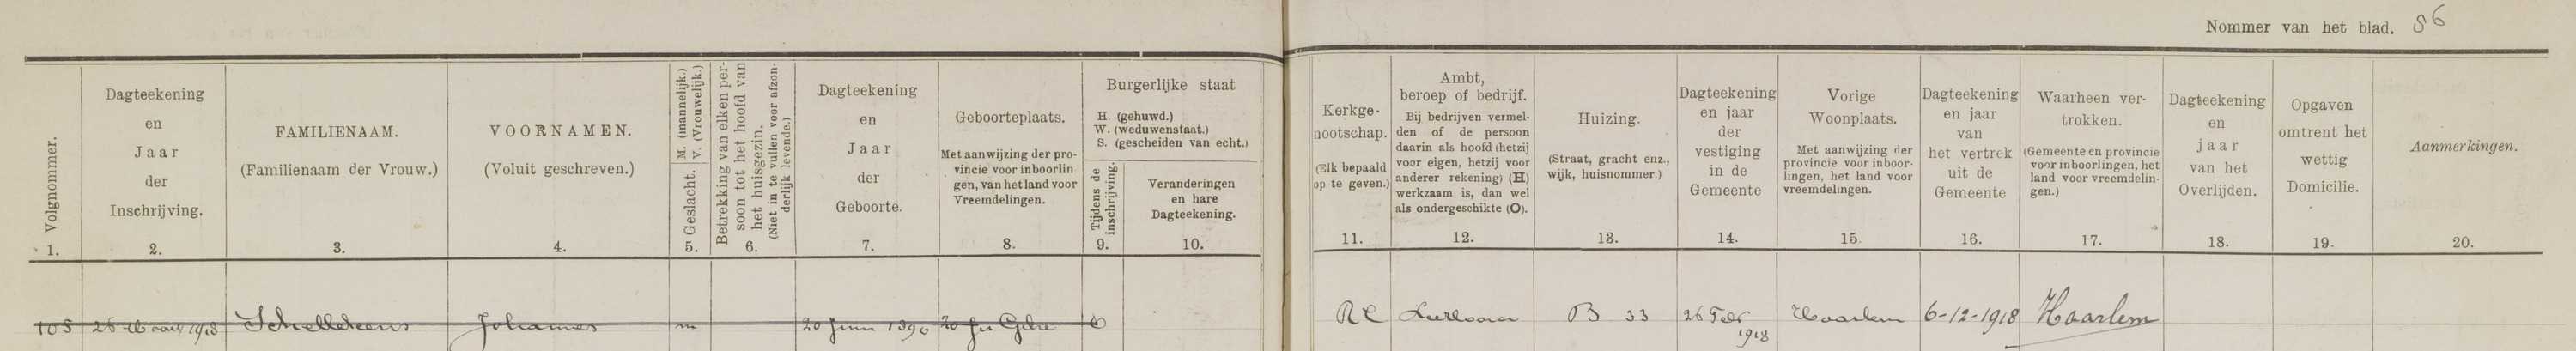 Nommer van het blad. 86
Volgnommer.
1.
Dagteekening
en
Jaar
der
Inschrijving.
2.
FAMILIENAAM.
(Familienaam der Vrouw.)
3.
VOORNAMEN.
(Voluit geschreven.)
4.
Geslacht.
M. (mannelijk.)
V. (Vrouwelijk.)
5.
Betrekking van elken per-
soon tot het hoofd van
het huisgezin.
(Niet in te vullen voor afzon-
derlijk levende.)
6.
Dagteekening
en
Jaar
der
Geboorte.
7.
Geboorteplaats.
Met aanwijzing der pro-
vincie voor inboorlin
gen, van het land voor
Vreemdelingen.
8.
Burgerlijke staat
H. (gehuwd.)
W. (weduwenstaat.)
S. (gescheiden van echt.)
Tijdens de
inschrijving.
9.
Veranderingen
en hare
Dagteekening.
10.
Kerkge-
nootschap.
(Elk bepaald
op te geven.)
11.
Ambt,
beroep of bedrijf.
Bij bedrijven vermel-
den of de persoon
daarin als hoofd (hetzij
voor eigen, hetzij voor
anderer rekening) (H)
werkzaam is, dan wel
als ondergeschikte (O).
12.
Huizing.
(Straat, gracht enz.,
wijk, huisnommer.)
13.
Dagteekening
en jaar
der
vestiging
in de
Gemeente
14.
Vorige
Woonplaats.
Met aanwijzing der
provincie voor inboor-
lingen, het land voor
vreemdelingen.
15.
Dagteekening
en jaar
van
het vertrek
uit de
Gemeente
16.
Waarheen ver-
trokken.
(Gemeente en provincie
voor inboorlingen, het
land voor vreemdelin-
gen.)
17.
Dagteekening
en
jaar
van het
Overlijden.
18.
Opgaven
omtrent het
wettig
Domicilie.
19.
Aanmerkingen.
20.
105 26 1918 Schellekens Johannes m 20 Juni 1890
B 33 26 Febr Haarlem 6-12-1918 Haarlem
1918